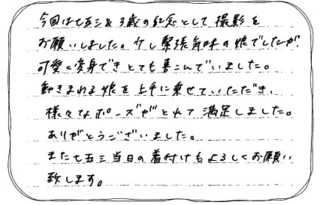 今回は七五三&3歳の記念として撮影を
お願いしました。少し緊張気味の娘でしたが
可愛く変身できとても喜こんでいました。
動きまわる娘を上手に乗せていただき、
様々なポーズがとれて満足しました。
ありがとうございました。
また七五三当日の着付けもよろしくお願い
致します。